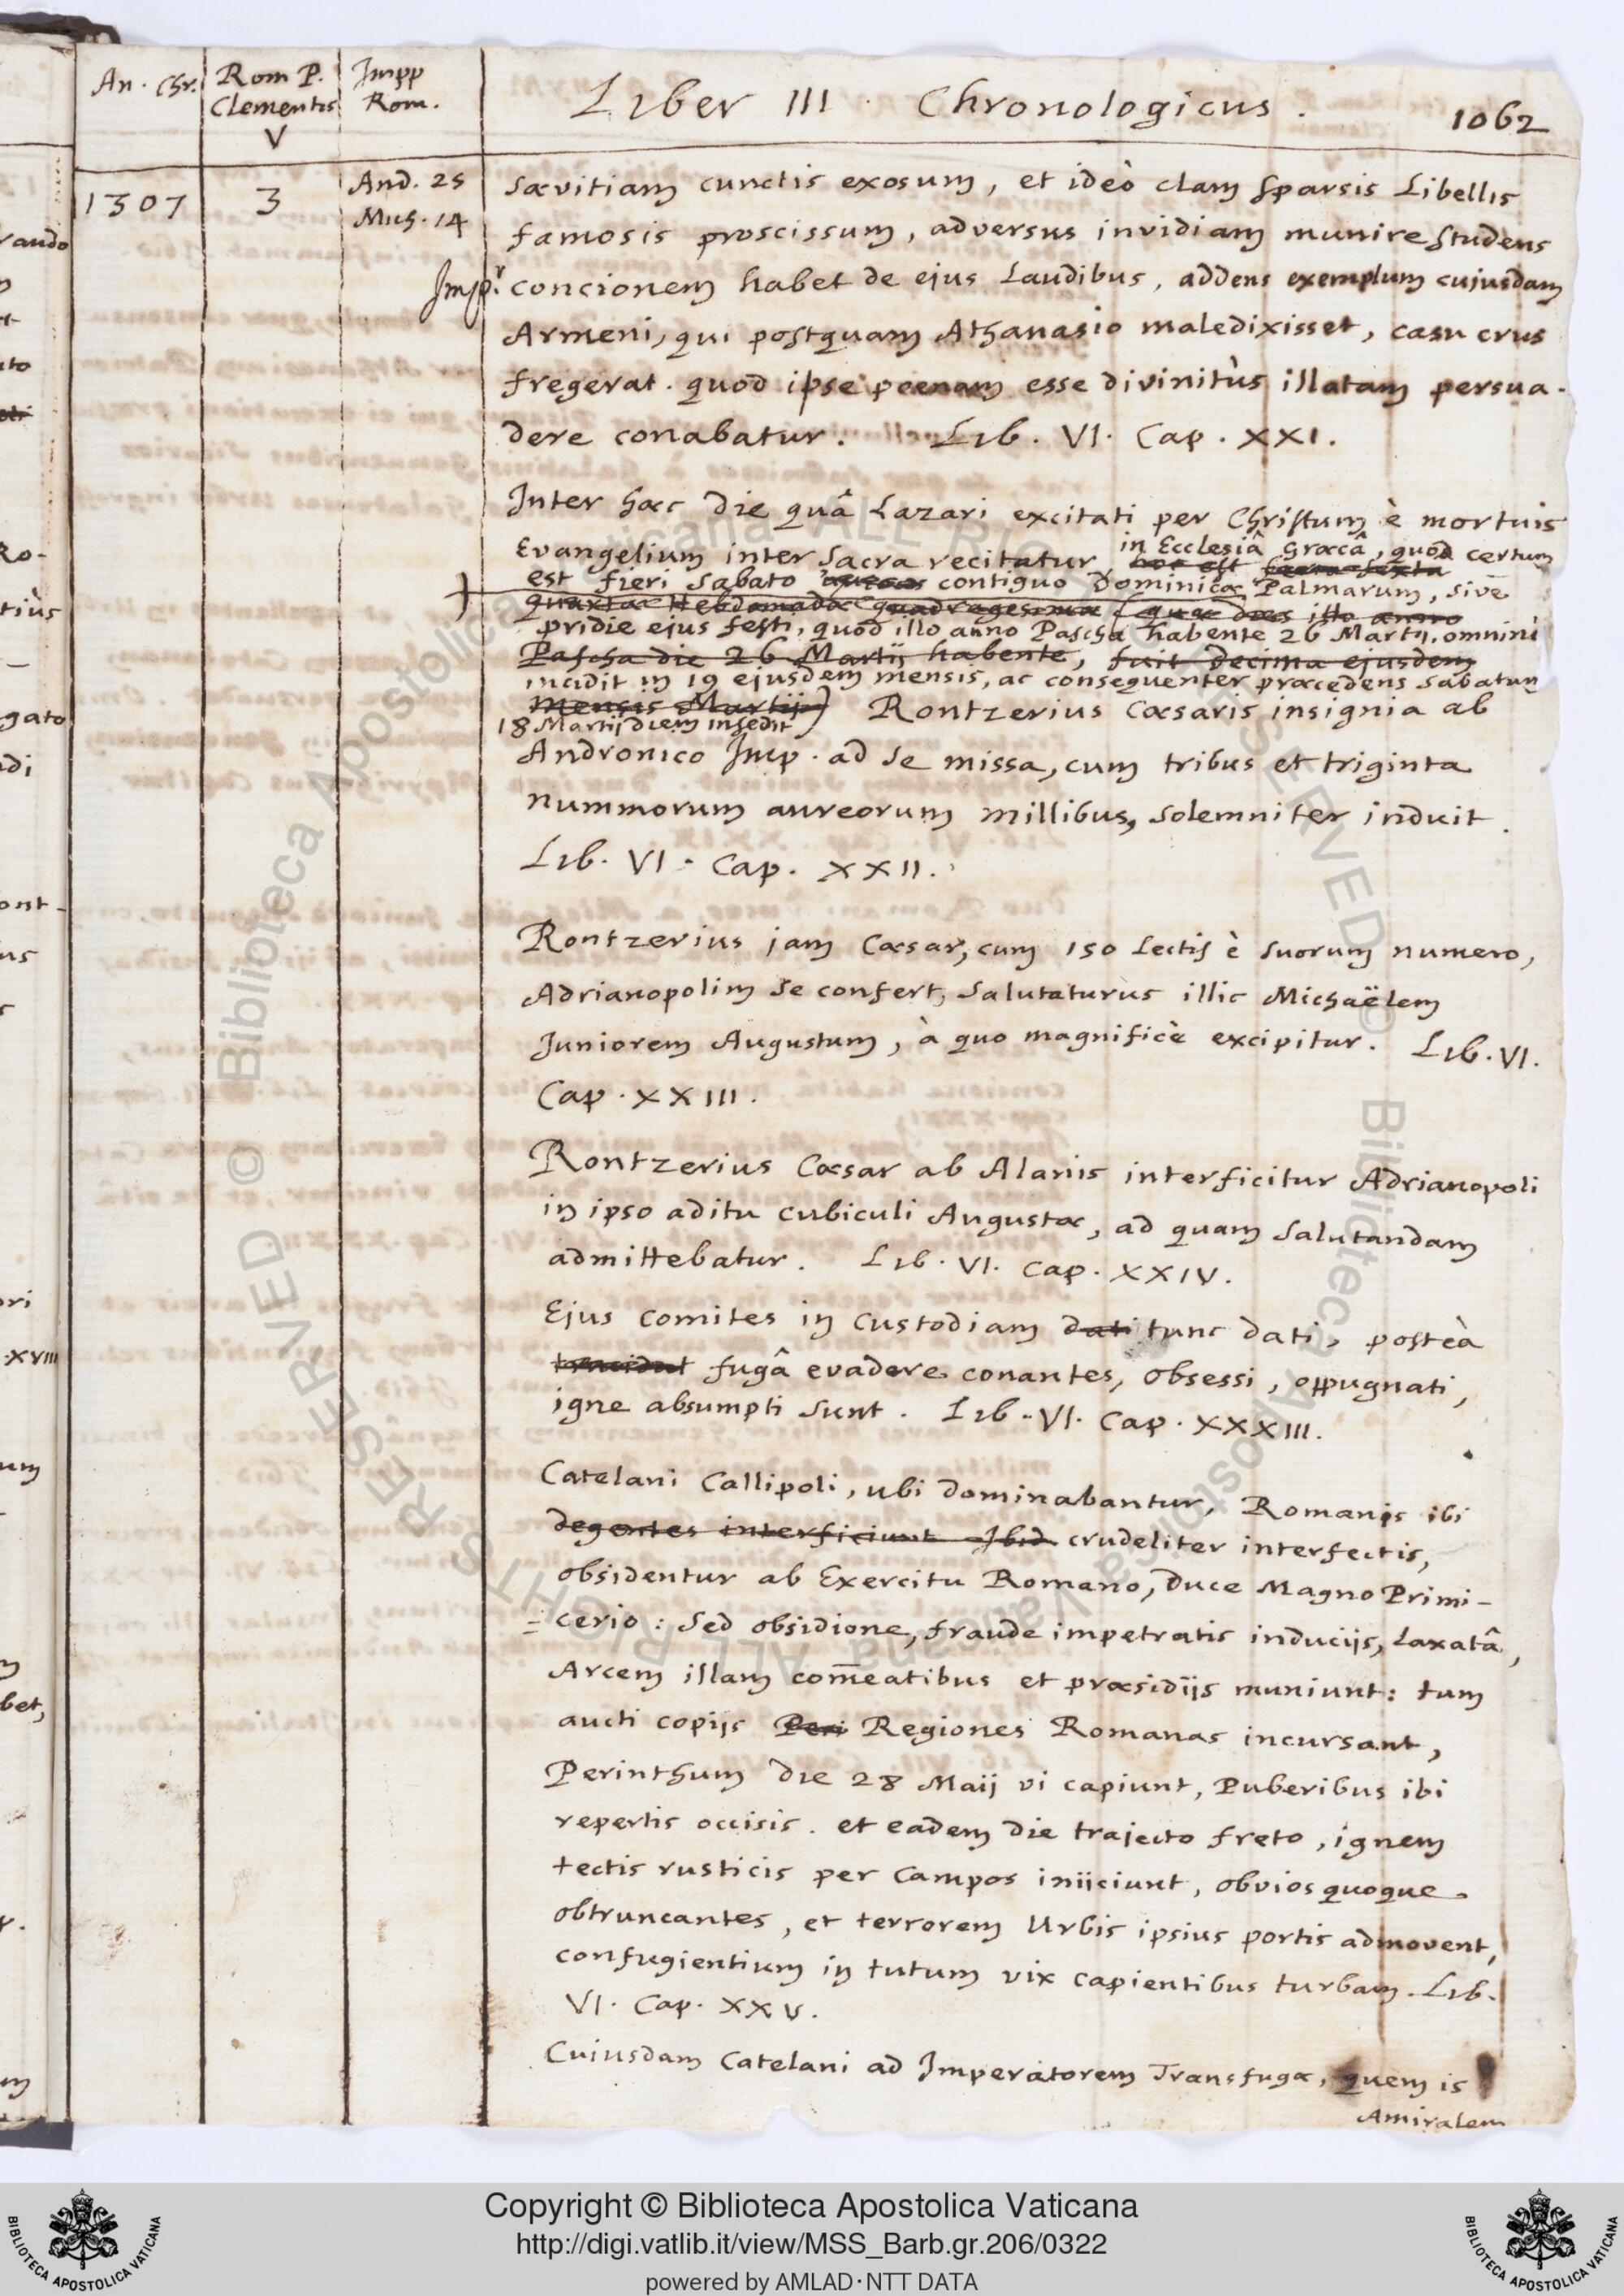 An. Chr.
Rom P.
Clementis
V
Impp
Rom.
Liber III. Chronologicus.
1062
1307
3
And. 25
Mich. 14
sævitiam cunctis exosum, et ideò clam sparsis Libellis
famosis proscissum, adversus invidiam munire studens
Impr. concionem habet de ejus Laudibus, addens exemplum cujusdam
Armeni, qui postquam Athanasio maledixisset, casu crus
fregerat. quod ipse pœnam esse divinitùs illatam persua-
dere conabatur. Lib. VI. Cap. XXI.
Inter hæc die quâ Lazari excitati per Christum è mortuis
in Ecclesiâ Græcâ, quod certum
Evangelium inter sacra recitatur, hoc est feria sexta
est fieri sabato contiguo Dominicæ Palmarum, sive
quartæ Hebdomadæ quadragesimæ (quæ dies illo anno
pridie ejus festi, quod illo anno Pascha habente 26 Martij, omnino
Pascha die 26 Martij habente, fuit decima ejusdem
incidit in 19 ejusdem mensis, ac consequenter præcedens sabatum
mensis Martij) Rontzerius Cæsaris insignia ab
18 Martij diem insedit)
Andronico Imp. ad se missa, cum tribus et triginta
nummorum aureorum millibus, solemniter induit.
Lib. VI. Cap. XXII.
Rontzerius jam Cæsar, cum 150 Lectis è suorum numero,
Adrianopolim se confert, salutaturus illic Michaëlem
Juniorem Augustum, à quo magnificè excipitur. Lib. VI.
Cap. XXIII.
Rontzerius Cæsar ab Alanis interficitur Adrianopoli
in ipso aditu cubiculi Augustæ, ad quam salutandam
admittebatur. Lib. VI. Cap. XXIV.
Ejus comites in custodiam dati tunc dati, posteà
fugâ evadere conantes, obsessi, oppugnati,
igne absumpti sunt. Lib. VI. Cap. XXXIII.
Catelani Callipoli, ubi dominabantur, Romanis ibi
degentes interficiunt Ibid crudeliter interfectis,
obsidentur ab Exercitu Romano, Duce Magno Primi-
=cerio: sed obsidione, fraude impetratis induciis, Laxatâ,
Arcem illam com̄eatibus et præsidijs muniunt: tum
aucti copijs Peri Regiones Romanas incursant,
Perinthum die 28 Maij vi capiunt, Puberibus ibi
repertis occisis. et eadem die trajecto freto, ignem
tectis rusticis per campos inijciunt, obvios quoque
obtruncantes, et terrorem Urbis ipsius portis admovent,
confugientium in tutum vix capientibus turbam. Lib.
VI. Cap. XXV.
Cuiusdam Catelani ad Imperatorem Transfugæ, quem is
Amiralem
Copyright © Biblioteca Apostolica Vaticana
http://digi.vatlib.it/view/MSS_Barb.gr.206/0322
powered by AMLAD·NTT DATA
BIBLIOTECA APOSTOLICA VATICANA
BIBLIOTECA APOSTOLICA VATICANA
© Biblioteca Apostolica Vaticana ALL RIGHTS RESERVED
© Biblioteca Apostolica Vaticana ALL RIGHTS RESERVED